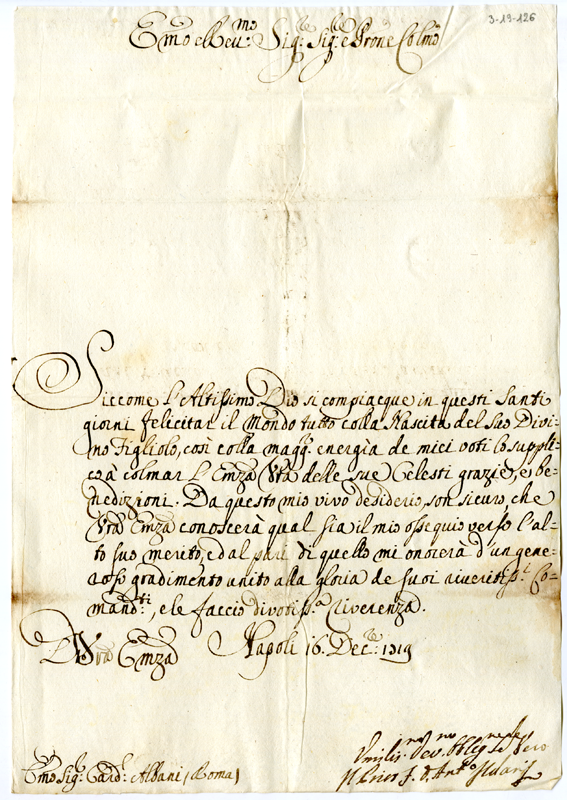 3-19-126
Emo e Reu:mo Sig:re Sig:re e Prone Colmo
Siccome l'Altissimo Dio si compiacque in questi Santi
giorni felicitar il Mondo tutto colla Nascita del suo Divi-
no Figliolo, così colla magg:r energia de miei voti lo suppli-
co à colmar l'Emza Vra delle sue Celesti grazie, e be-
nedizioni. Da questo mio vivo desiderio, son sicuro che
Vra Emza conoscerà qual sia il mio ossequio verso l'al-
to suo merito, ed al pari di quello mi onorerà d'un gene-
roso gradimento unito alla gloria de suoi riveritiss:i Co-
mand:ti, e le faccio divotiss:a riverenza.
D Vra Emza Napoli 16. Dec:re 1719
Emo Sig:r Card:l Albani (Roma)
Vmilis:mo Deu:mo Obblig: